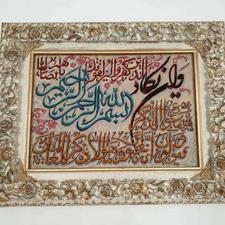 بسم الله الرحمن الرحيم
وان يكاد
الذين كفروا ليزلقونك بابصارهم
لما سمعوا الذكر
ويقولون انه لمجنون وما هو الا ذكر للعالمين